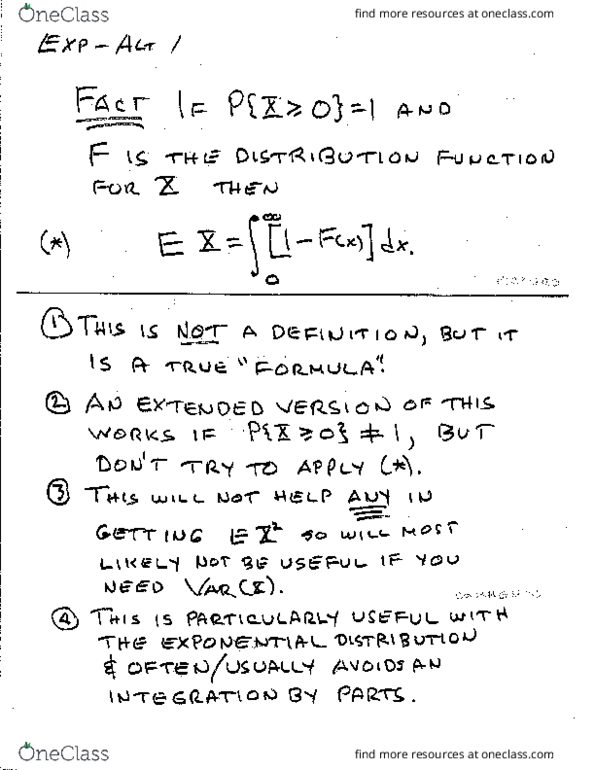 OneClass
find more resources at oneclass.com
EXP-ALT 1
FACT IF P{X≥0}=1 AND
F IS THE DISTRIBUTION FUNCTION
FOR X THEN
(*) E X = ∫₀^∞ [1 - F(x)] dx.
① THIS IS NOT A DEFINITION, BUT IT
IS A TRUE "FORMULA".
② AN EXTENDED VERSION OF THIS
WORKS IF P{X≥0} ≠ 1, BUT
DON'T TRY TO APPLY (*).
③ THIS WILL NOT HELP ANY IN
GETTING E X² SO WILL MOST
LIKELY NOT BE USEFUL IF YOU
NEED VAR(X).
④ THIS IS PARTICULARLY USEFUL WITH
THE EXPONENTIAL DISTRIBUTION
& OFTEN/USUALLY AVOIDS AN
INTEGRATION BY PARTS.
OneClass
find more resources at oneclass.com